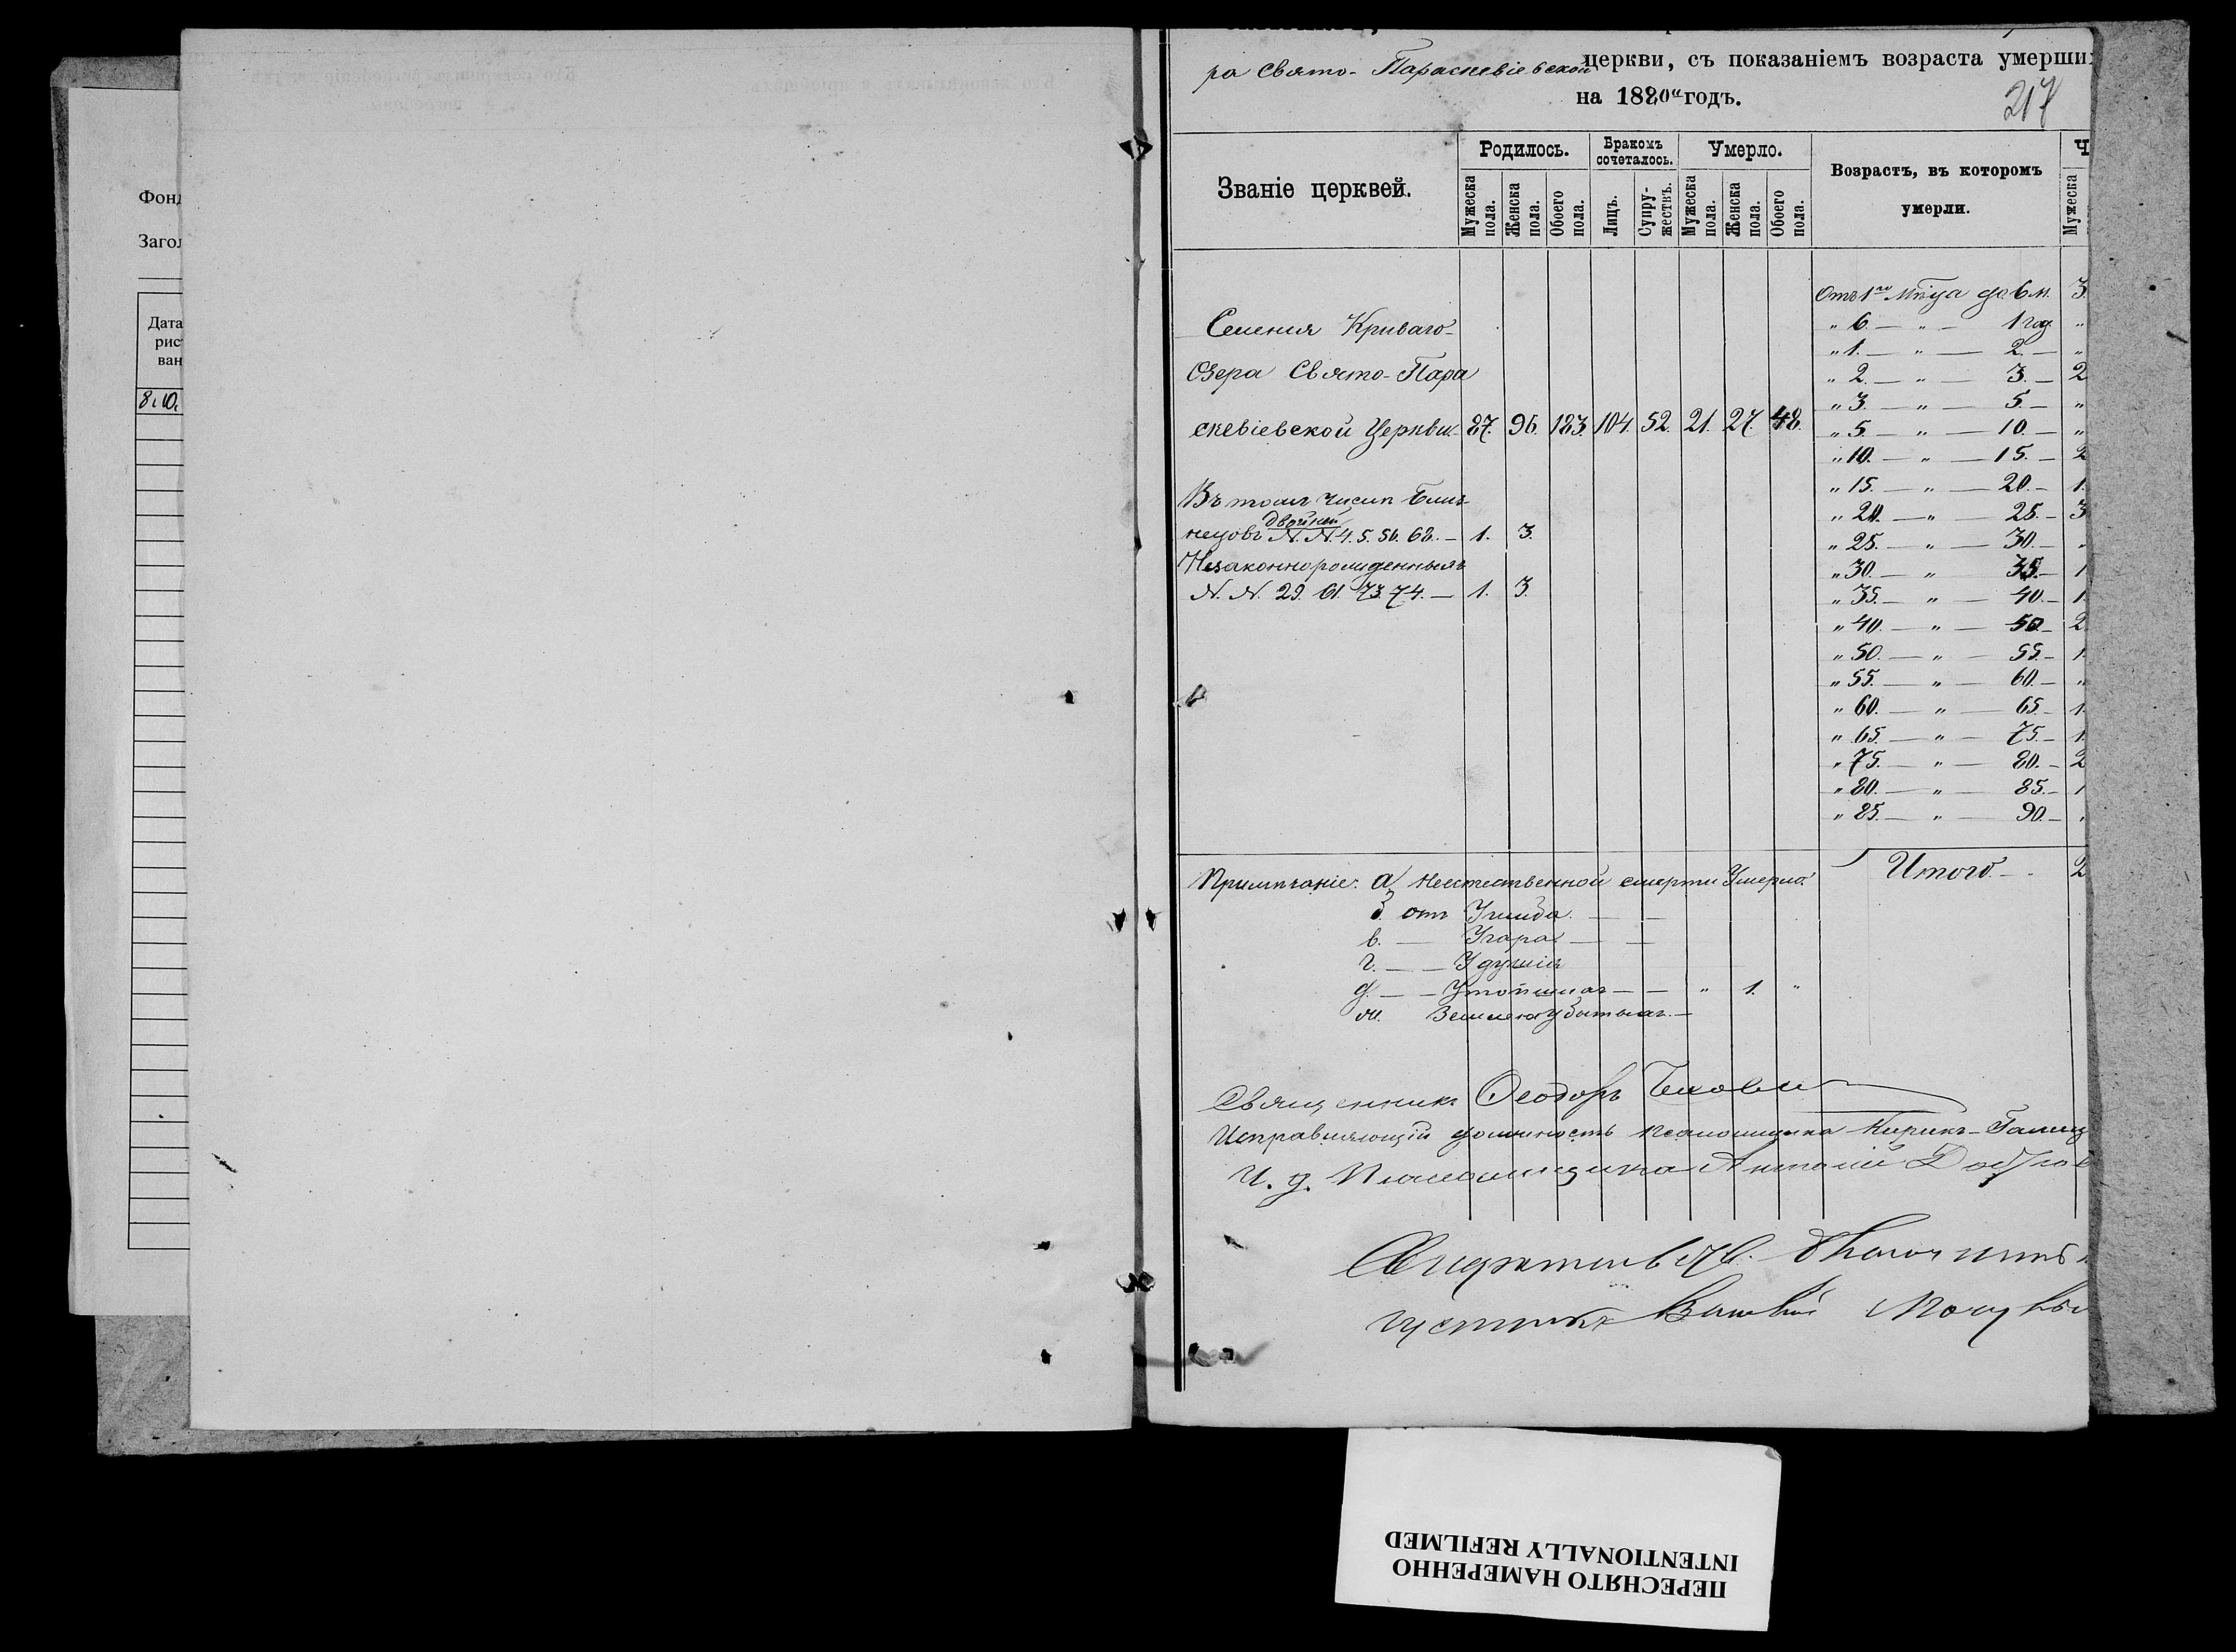 Фонд
Загол
Дата
рис
ван
8.10.
ра Свято-Параскевіевской церкви, съ показаніемъ возраста умерши
на 1880й годъ.
217
Званіе церквей.
Родилось.
Бракомъ сочеталось.
Умерло.
Возрастъ, въ которомъ умерли.
Ч
Мужеска пола.
Женска пола.
Обоего пола.
Лицъ.
Супружествъ.
Мужеска пола.
Женска пола.
Обоего пола.
Мужеска
Селенія Криваго-
Озера Свято-Пара
скевіевской Церкви 87. 96. 183. 104. 52. 21. 27. 48.
Въ томъ числѣ Близ-
нецовъ двойней N. N. 4. 5. 56. 68. — 1. 3.
Незаконнорожденныхъ
N. N. 29. 61. 73. 74. — 1. 3.
Отъ 1го мѣца до 6 м. 3.
" 6. — " — 1 год. "
" 1. — " — 2. — "
" 2. — " — 3. — 2
" 3. — " — 5. — "
" 5. — " — 10. — "
" 10. — " — 15. — 2
" 15. — " — 20. — 1.
" 20. — " — 25. — 3
" 25. — " — 30. — "
" 30. — " — 35. — 1
" 35. — " — 40. — 1.
" 40. — " — 50. — 2.
" 50. — " — 55. — 1.
" 55. — " — 60. — "
" 60. — " — 65. — 1.
" 65. — " — 75. — 1.
" 75. — " — 80. — 2
" 80. — " — 85. — 1
" 85. — " — 90. — "
Итого. — 2
Примѣчаніе: а Неестественной смерти Умерло.
б. отъ Ушиба. — —
в. — Угара — —
г. — — Удушія
д. — — Утопшихъ — — " 1. "
Священникъ Ѳеодоръ
Исправляющій должность псаломщика Кирилъ
И. д. Псаломщика Антоній
ПЕРЕСНЯТО НАМЕРЕННО
INTENTIONALLY REFILMED